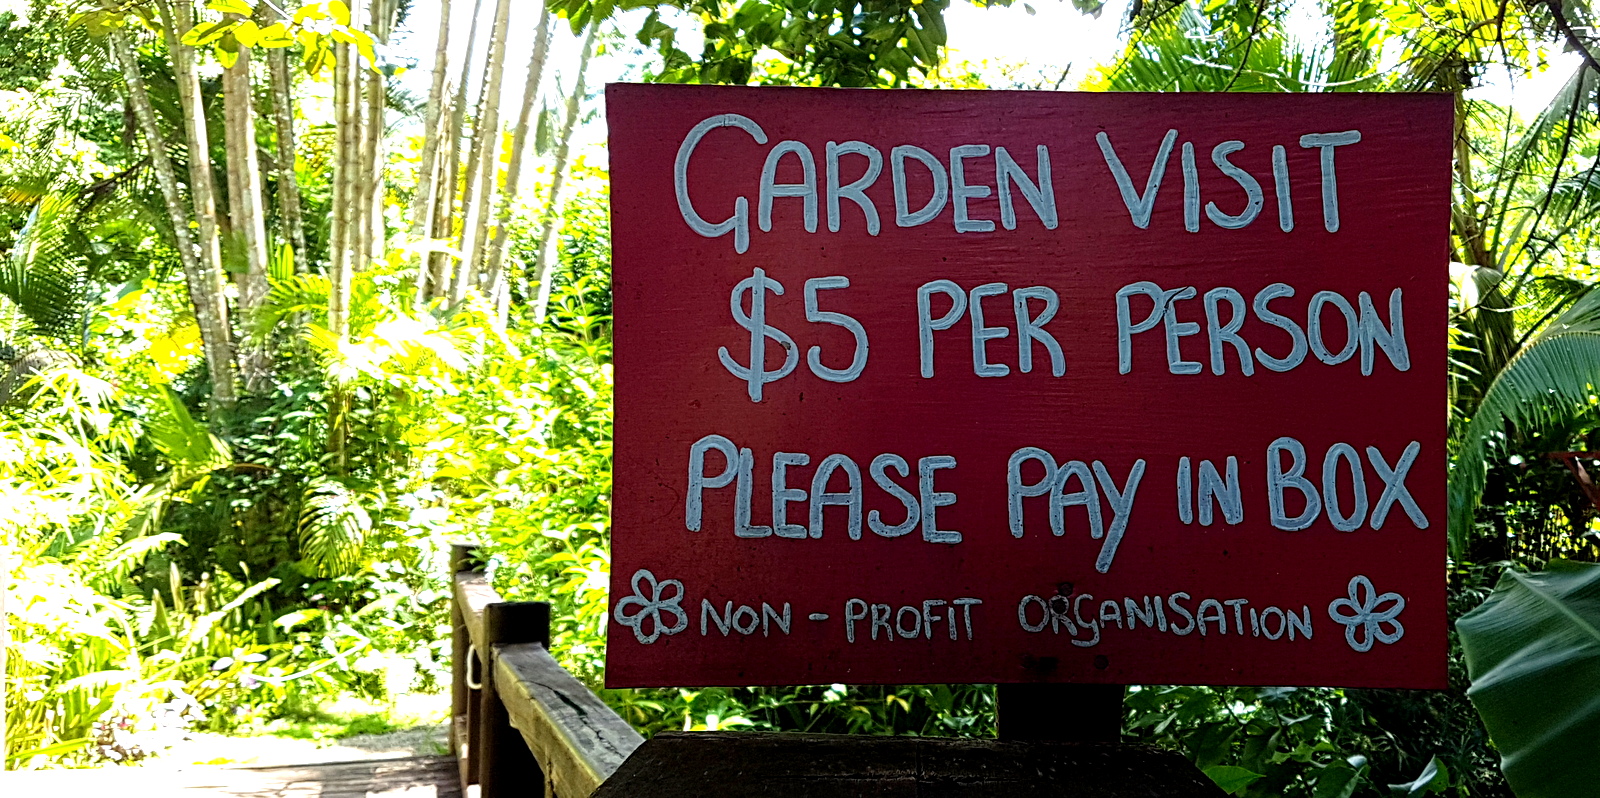 GARDEN VISIT
$5 PER PERSON
PLEASE PAY IN BOX
NON - PROFIT ORGANISATION